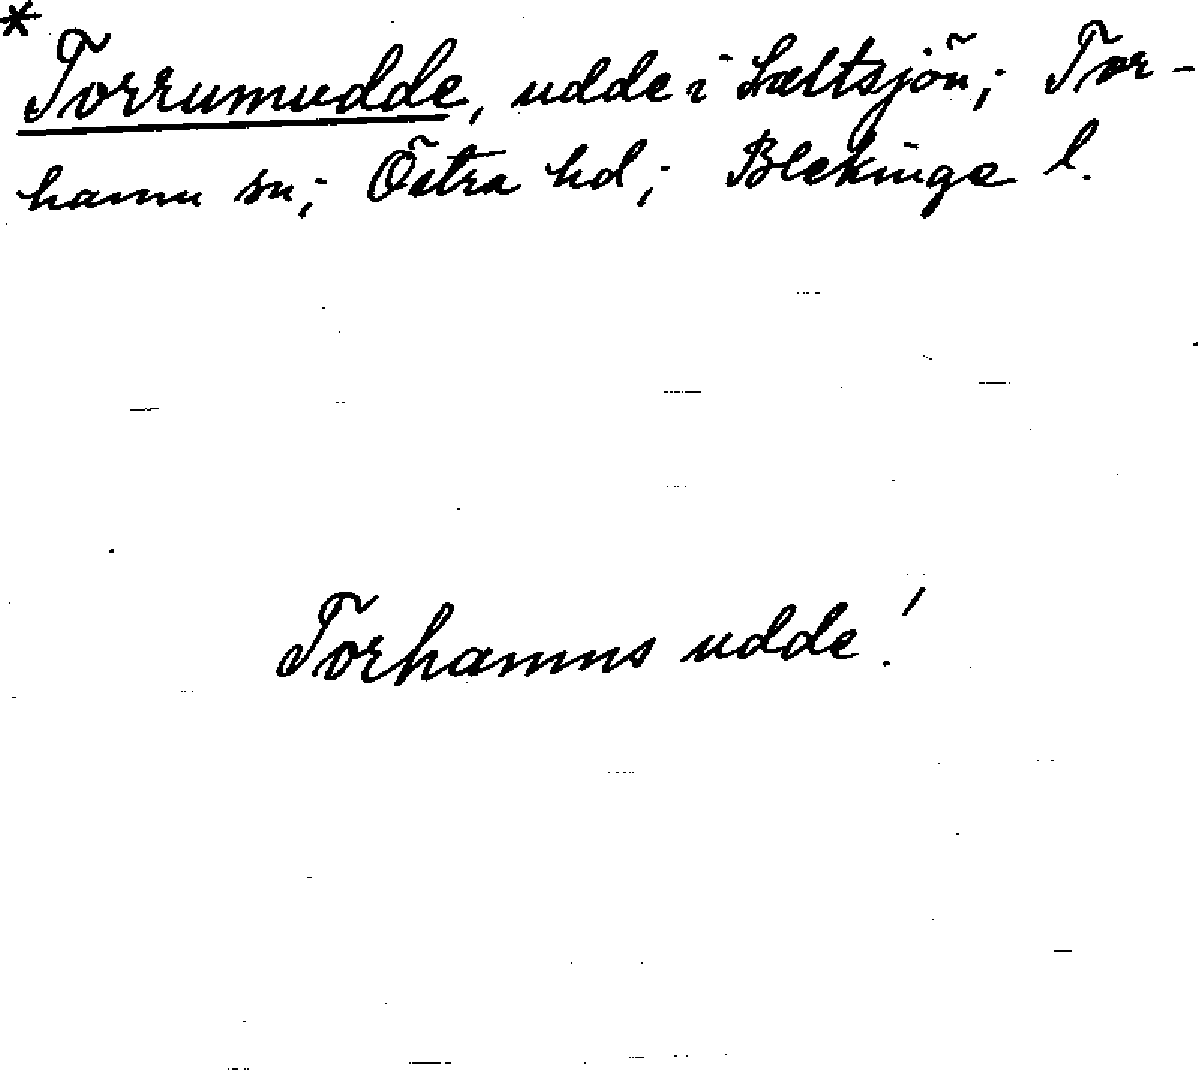 * Torrumudde, udde i Saltsjön; Tor-
hamn sn; Östra hd; Blekinge l.
Torhamns udde!